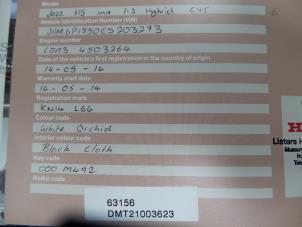 Model
Jazz HS Ima 1.3 Hybrid CVT
Vehicle Identification Number (VIN)
JHMGP1850ES203273
Engine number
LDA3 4503264
Date of the vehicle's first registration in the country of origin
14-05-14
Warranty start date
14-05-14
Registration mark
KN14 LGG
Colour code
White Orchid
Interior colour code
Black Cloth
Key code
000 M492
Radio code
63156
DMT21003623
Listers H